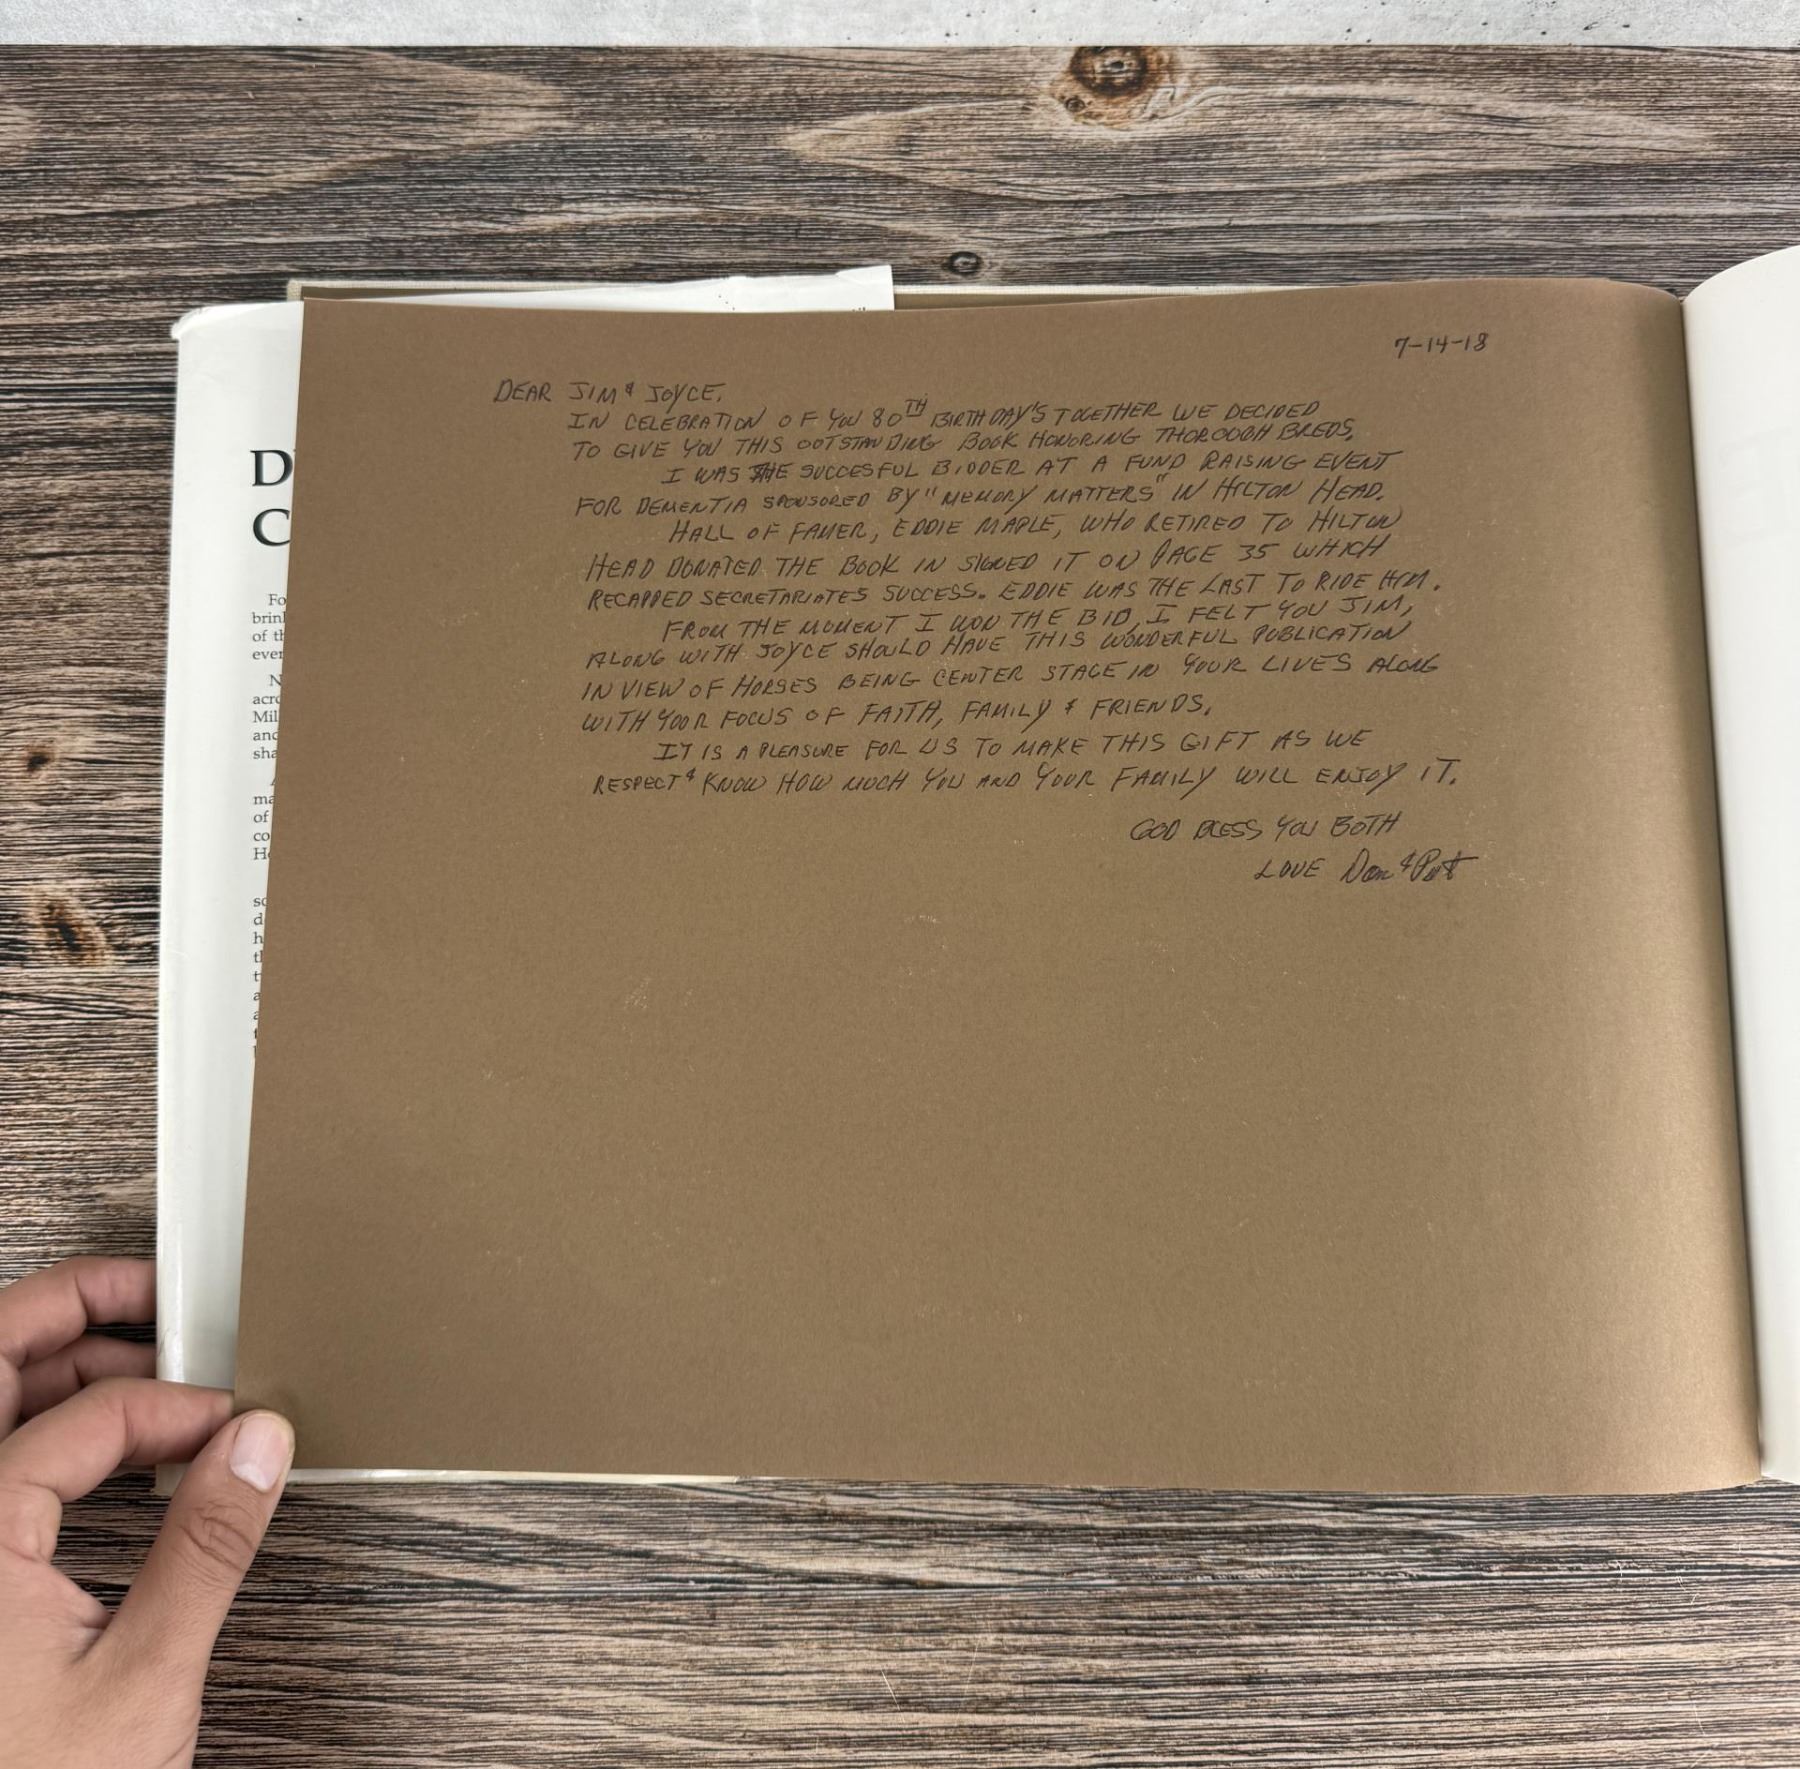 D
C
Fo
brin
of th
ever
N
acro
Mil
and
sha
A
ma
of
co
He
so
d
h
th
t
a
a
7-14-18
DEAR JIM & JOYCE,
IN CELEBRATION OF YOU 80TH BIRTHDAY'S TOGETHER WE DECIDED
TO GIVE YOU THIS OOTSTANDING BOOK HONORING THOROUGH BREDS.
I WAS THE SUCCESFUL BIDDER AT A FUND RAISING EVENT
FOR DEMENTIA SPONSORED BY "MEMORY MATTERS" IN HILTON HEAD.
HALL OF FAMER, EDDIE MAPLE, WHO RETIRED TO HILTON
HEAD DONATED THE BOOK IN SIGNED IT ON PAGE 35 WHICH
RECAPPED SECRETARIATES SUCCESS. EDDIE WAS THE LAST TO RIDE HIM.
FROM THE MOMENT I WON THE BID, I FELT YOU JIM,
ALONG WITH JOYCE SHOULD HAVE THIS WONDERFUL PUBLICATION
IN VIEW OF HORSES BEING CENTER STAGE IN YOUR LIVES ALONG
WITH YOOR FOCUS OF FAITH, FAMILY & FRIENDS.
IT IS A PLEASURE FOR US TO MAKE THIS GIFT AS WE
RESPECT & KNOW HOW MUCH YOU AND YOUR FAMILY WILL ENJOY IT.
GOD BLESS YOU BOTH
LOVE Don & Pat